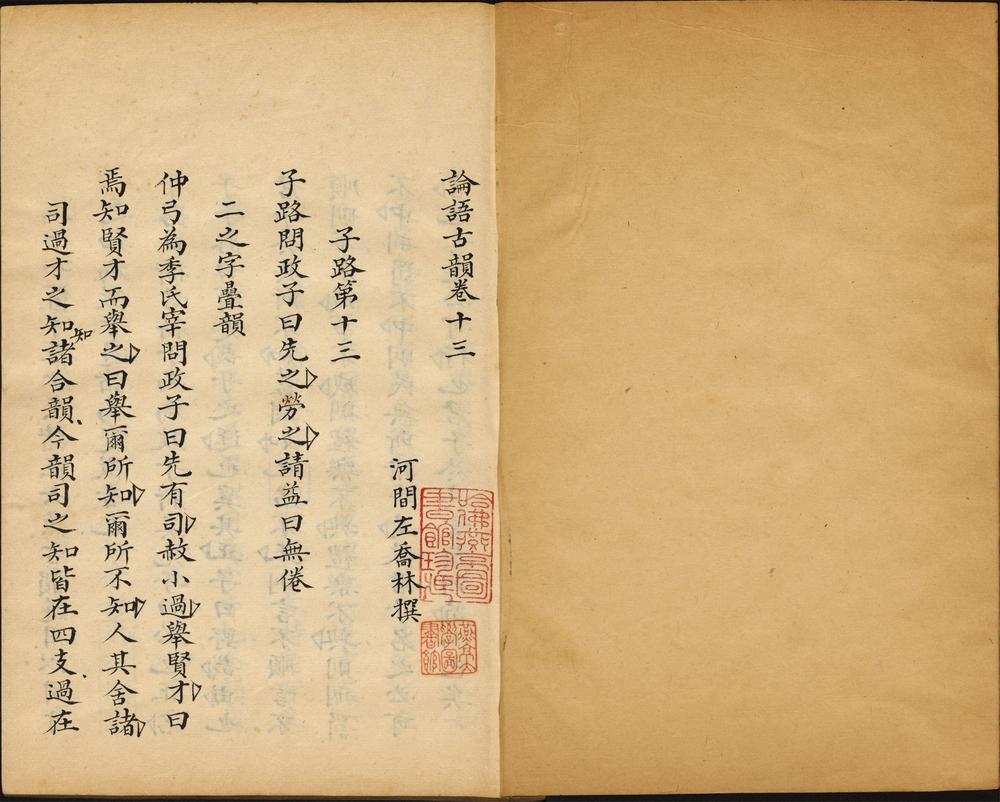 論語古韻卷十三
河間左喬林撰
哈佛燕京圖書館珍藏
燕京大學圖書館
子路第十三
子路問政子曰先之勞之請益曰無倦
二之字疊韻
仲弓為季氏宰問政子曰先有司赦小過舉賢才曰
焉知賢才而舉之曰舉爾所知爾所不知人其舍諸
司過才之知知諸合韻今韻司之知皆在四支過在